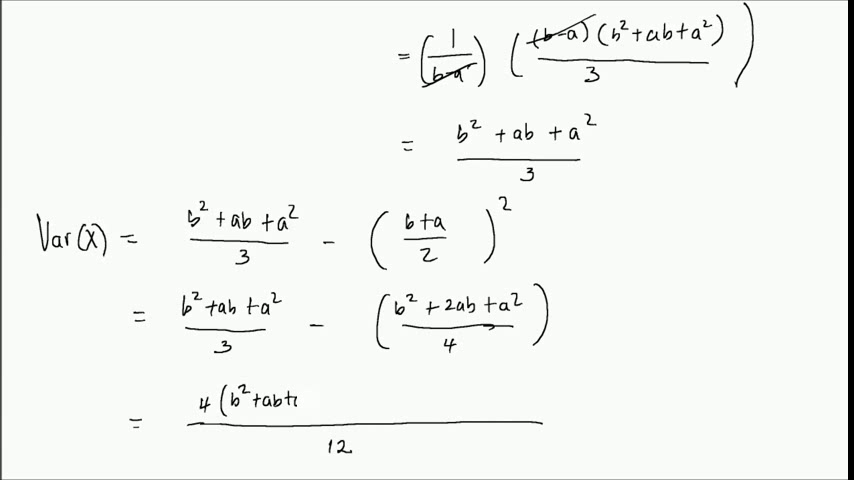 = (1/(b-a)) ((b-a)(b²+ab+a²)/3)
= (b² + ab + a²)/3
Var(X) = (b² + ab + a²)/3 - ((b+a)/2)²
= (b² + ab + a²)/3 - ((b² + 2ab + a²)/4)
= 4(b² + ab +/12